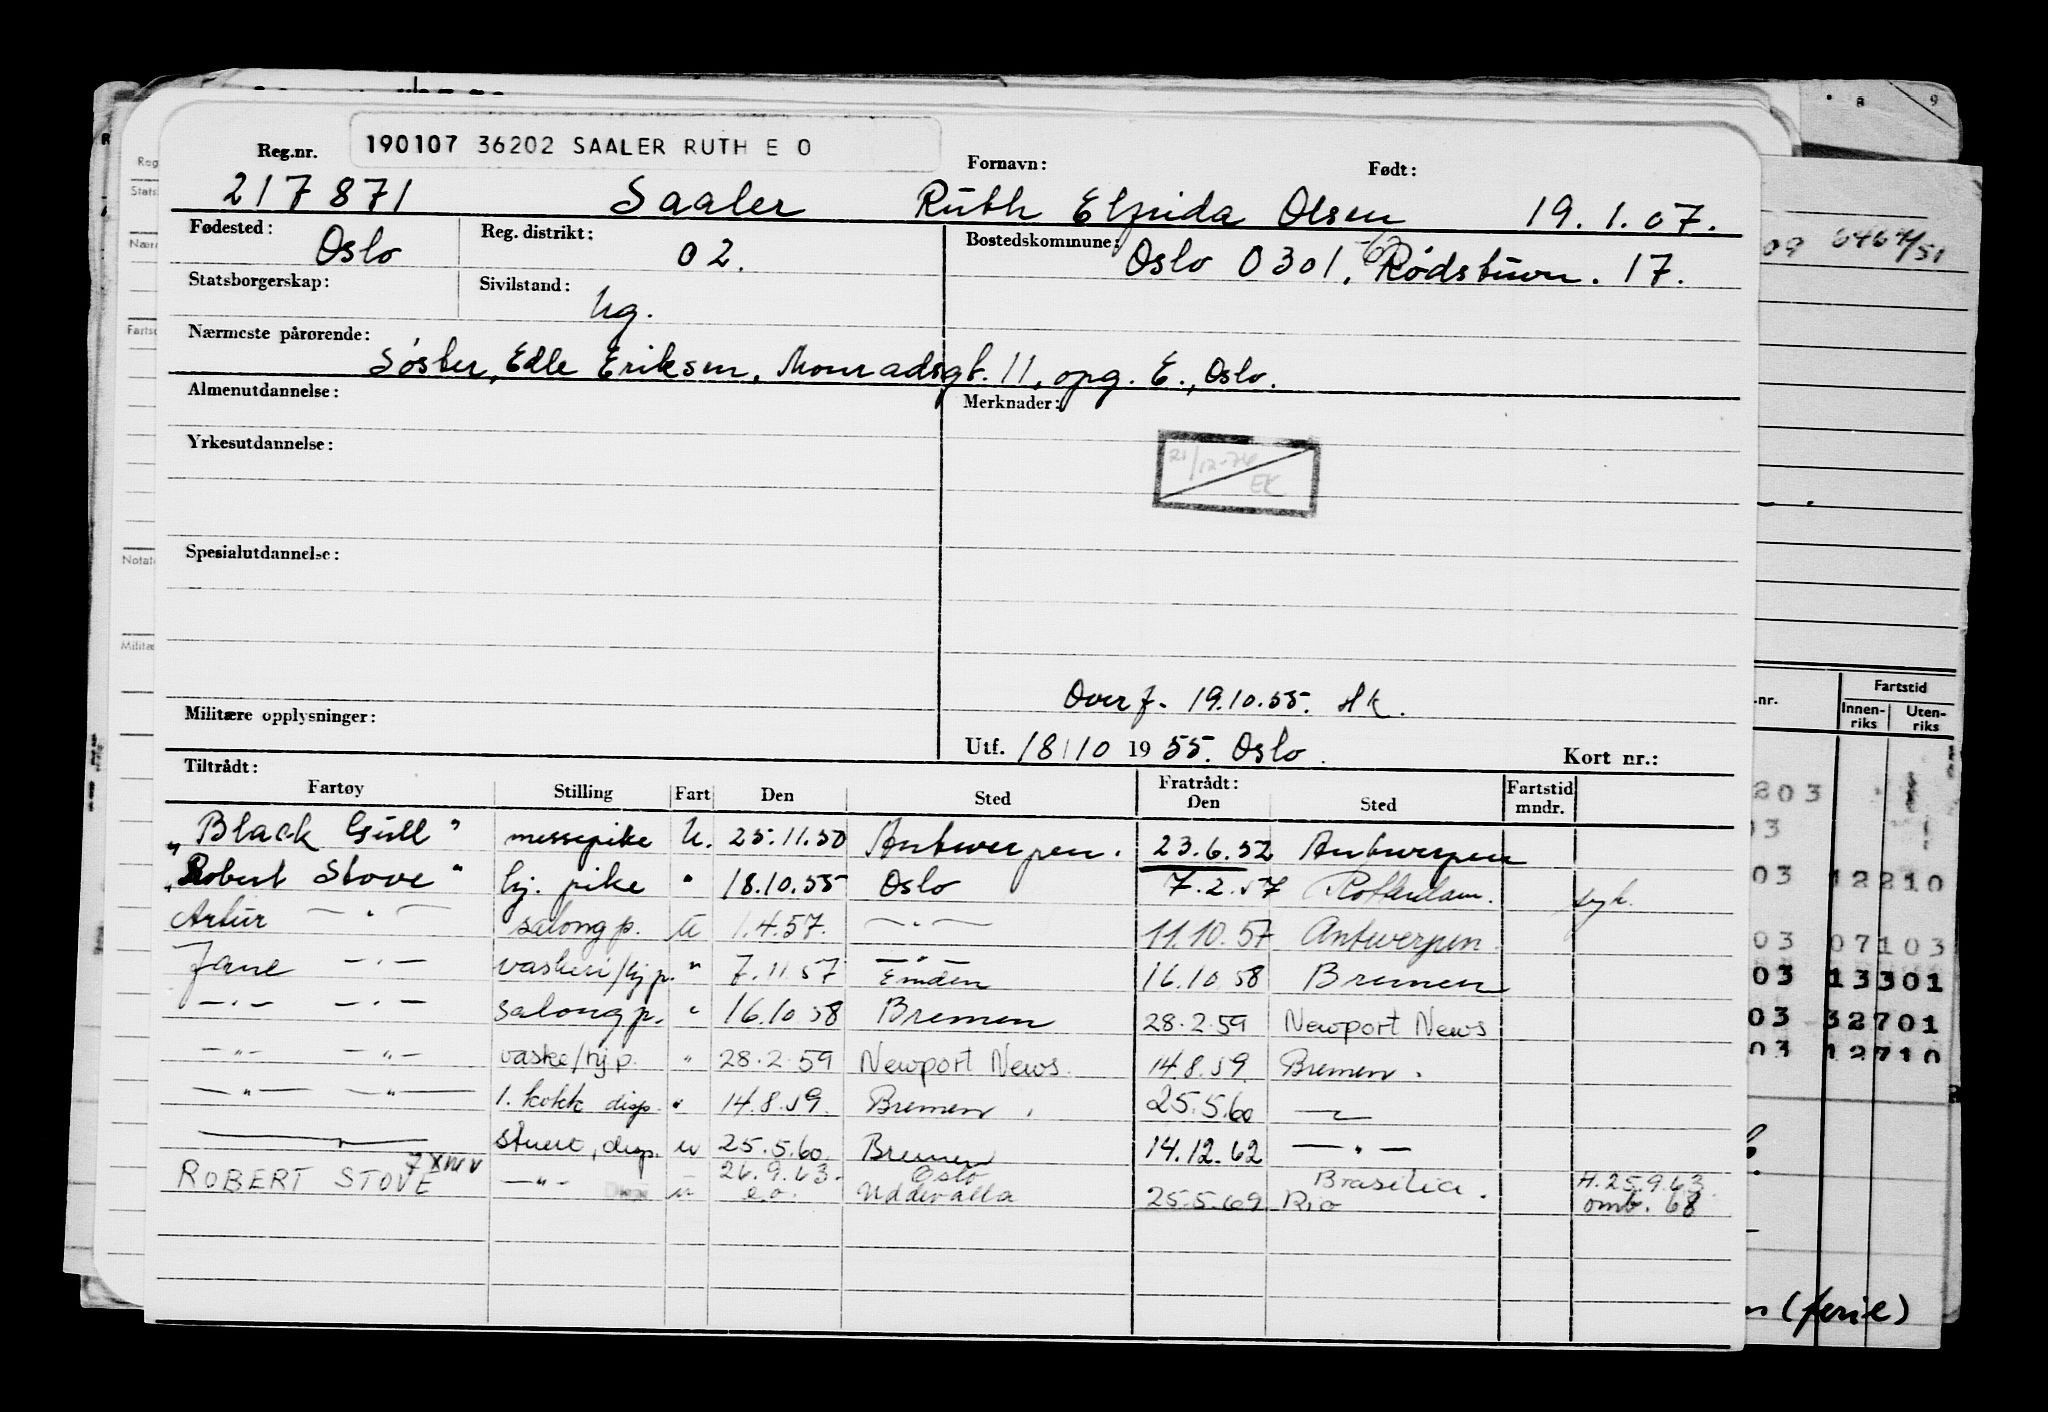 190107 36202 SAALER RUTH E O
Reg.nr. Fornavn: Født:
217871 Saaler Ruth Elfrida Olsen 19.1.07.
Fødested: Oslo Reg. distrikt: 02. Bostedskommune: Oslo 0301, Rødstuvn. 17.
Statsborgerskap: Sivilstand: Ug.
Nærmeste pårørende:
Søster, Edle Eriksen, Monradsgt. 11, opg. E., Oslo.
Almenutdannelse: Merknader:
Yrkesutdannelse:
21/12-76 EK
Spesialutdannelse:
Overf. 19.10.55. Hk.
Militære opplysninger:
Utf. 18/10 1955. Oslo. Kort nr.:
Tiltrådt: Fratrådt:
Fartøy Stilling Fart Den Sted Den Sted Fartstid mndr.
"Black Gull" messepike U. 25.11.50 Antwerpen. 23.6.52 Antwerpen
"Robert Stove" hj. pike " 18.10.55 Oslo 7.2.57 Rotterdam. syk.
Artur — " — salongp. u 1.4.57. — " — 11.10.57 Antwerpen.
Jane — " — vaskeri/hj p. " 7.11.57 Emden 16.10.58 Bremen
— " — — " — salongp. " 16.10.58 Bremen 28.2.59 Newport News
— " — — " — vaske/hj p. " 28.2.59 Newport News. 14.8.59. Bremen.
— " — — " — 1. kokk disp. " 14.8.59. Bremen. 25.5.60 — " —
— " — stuert, disp. u 25.5.60. Bremen 14.12.62 — " —
ROBERT STOVE — " — u 26.9.63. Oslo Brasilia. H.25.9.63.
e.o. Uddevalla 25.5.69 Rio omb. 68
8 9
09 6464/51
.nr. Fartstid
Innen-riks Uten-riks
203
03
03 12210
03 07103
03 13301
03 32701
03 12710
(ferie)